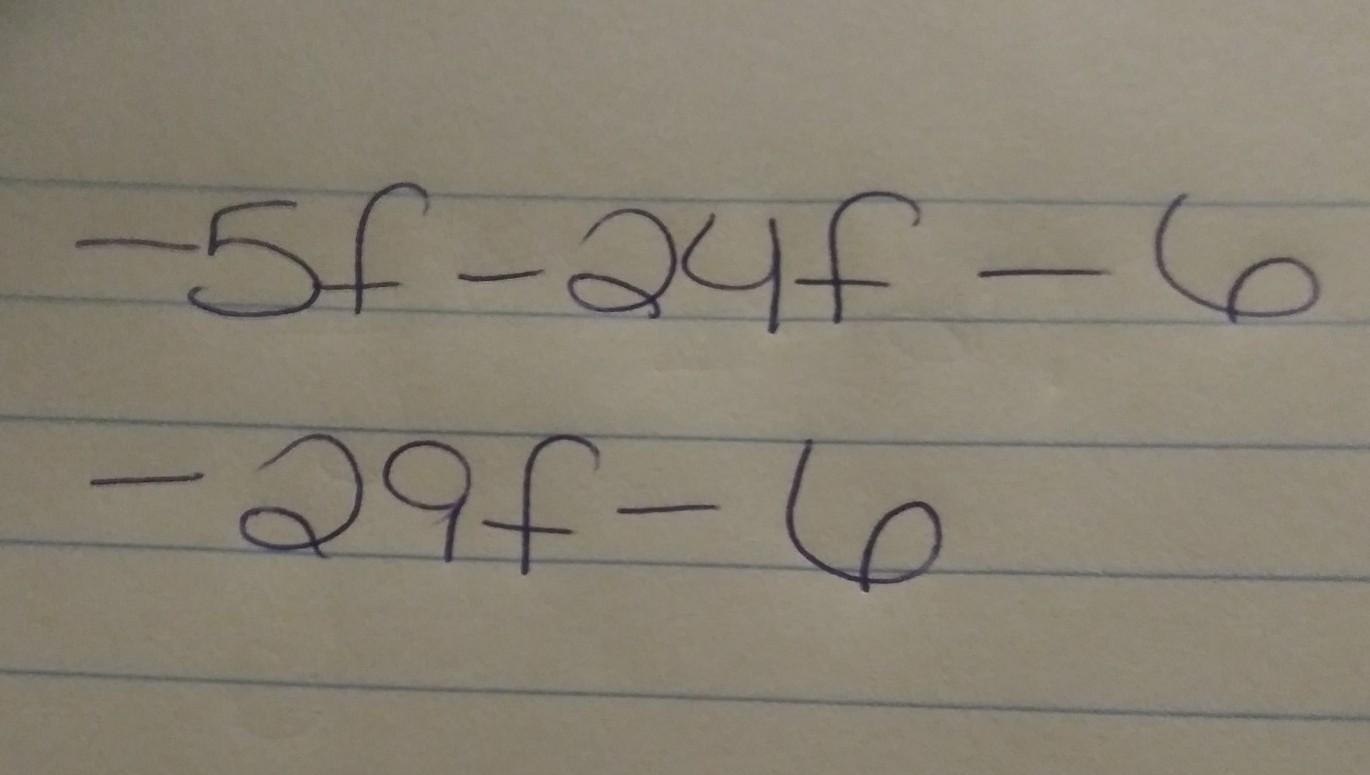 -5f - 24f - 6
-29f - 6